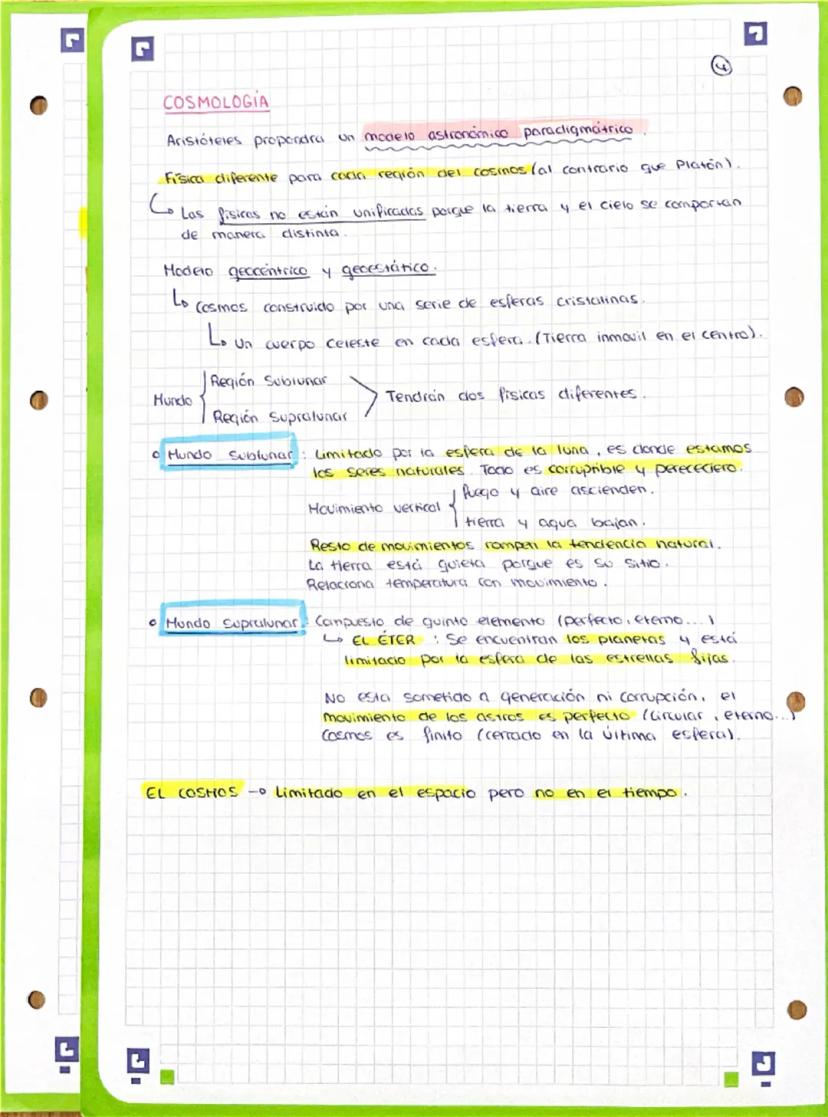 4
COSMOLOGÍA
Aristóteles propondrá un modelo astronómico paradigmático.
Física diferente para cada región del cosmos (al contrario que Platón).
↳ Las físicas no están unificadas porque la tierra y el cielo se comportan
de manera distinta.
Modelo geocéntrico y geoestático.
↳ Cosmos construido por una serie de esferas cristalinas.
↳ Un cuerpo celeste en cada esfera. (Tierra inmovil en el centro).
Mundo { Región Sublunar
Región Supralunar > Tendrán dos físicas diferentes.
Mundo Sublunar: Limitado por la esfera de la luna, es donde estamos
los seres naturales. Todo es corruptible y perecedero.
Movimiento vertical { fuego y aire ascienden.
tierra y agua bajan.
Resto de movimientos rompen la tendencia natural.
La tierra está quieta porque es su sitio.
Relaciona temperatura con movimiento.
Mundo Supralunar: Compuesto de quinto elemento (perfecto, eterno...)
↳ EL ÉTER: Se encuentran los planetas y está
limitado por la esfera de las estrellas fijas.
No esta sometido a generación ni corrupción, el
movimiento de los astros es perfecto (circular, eterno...)
Cosmos es finito (cerrado en la última esfera).
EL COSMOS → Limitado en el espacio pero no en el tiempo.